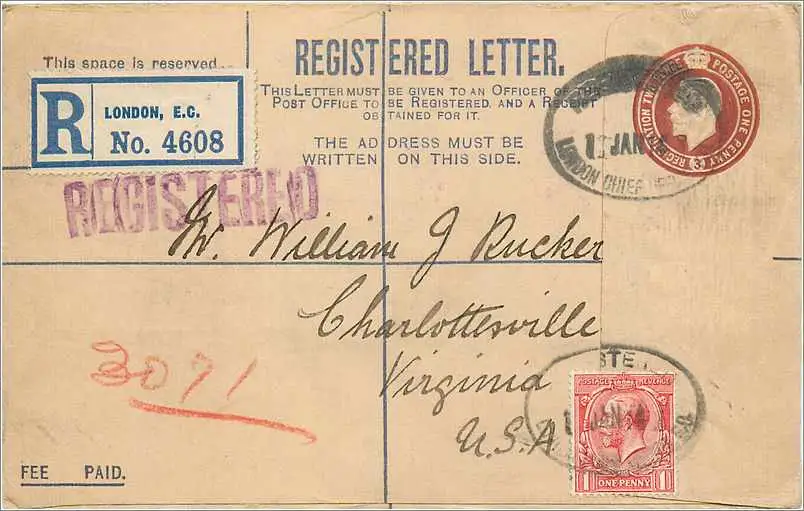 This space is reserved
REGISTERED LETTER.
THIS LETTER MUST BE GIVEN TO AN OFFICER OF THE
POST OFFICE TO BE REGISTERED, AND A RECEIPT
OBTAINED FOR IT.
THE ADDRESS MUST BE
WRITTEN ON THIS SIDE.
R
LONDON, E.C.
No. 4608
REGISTERED
REGISTRATION TWOPENCE POSTAGE ONE PENNY
JAN
LONDON CHIEF
Mr. William J Rucker
Charlottesville
Virginia
U.S.A
3091
JAN
POSTAGE REVENUE
1 ONE PENNY 1
FEE PAID.